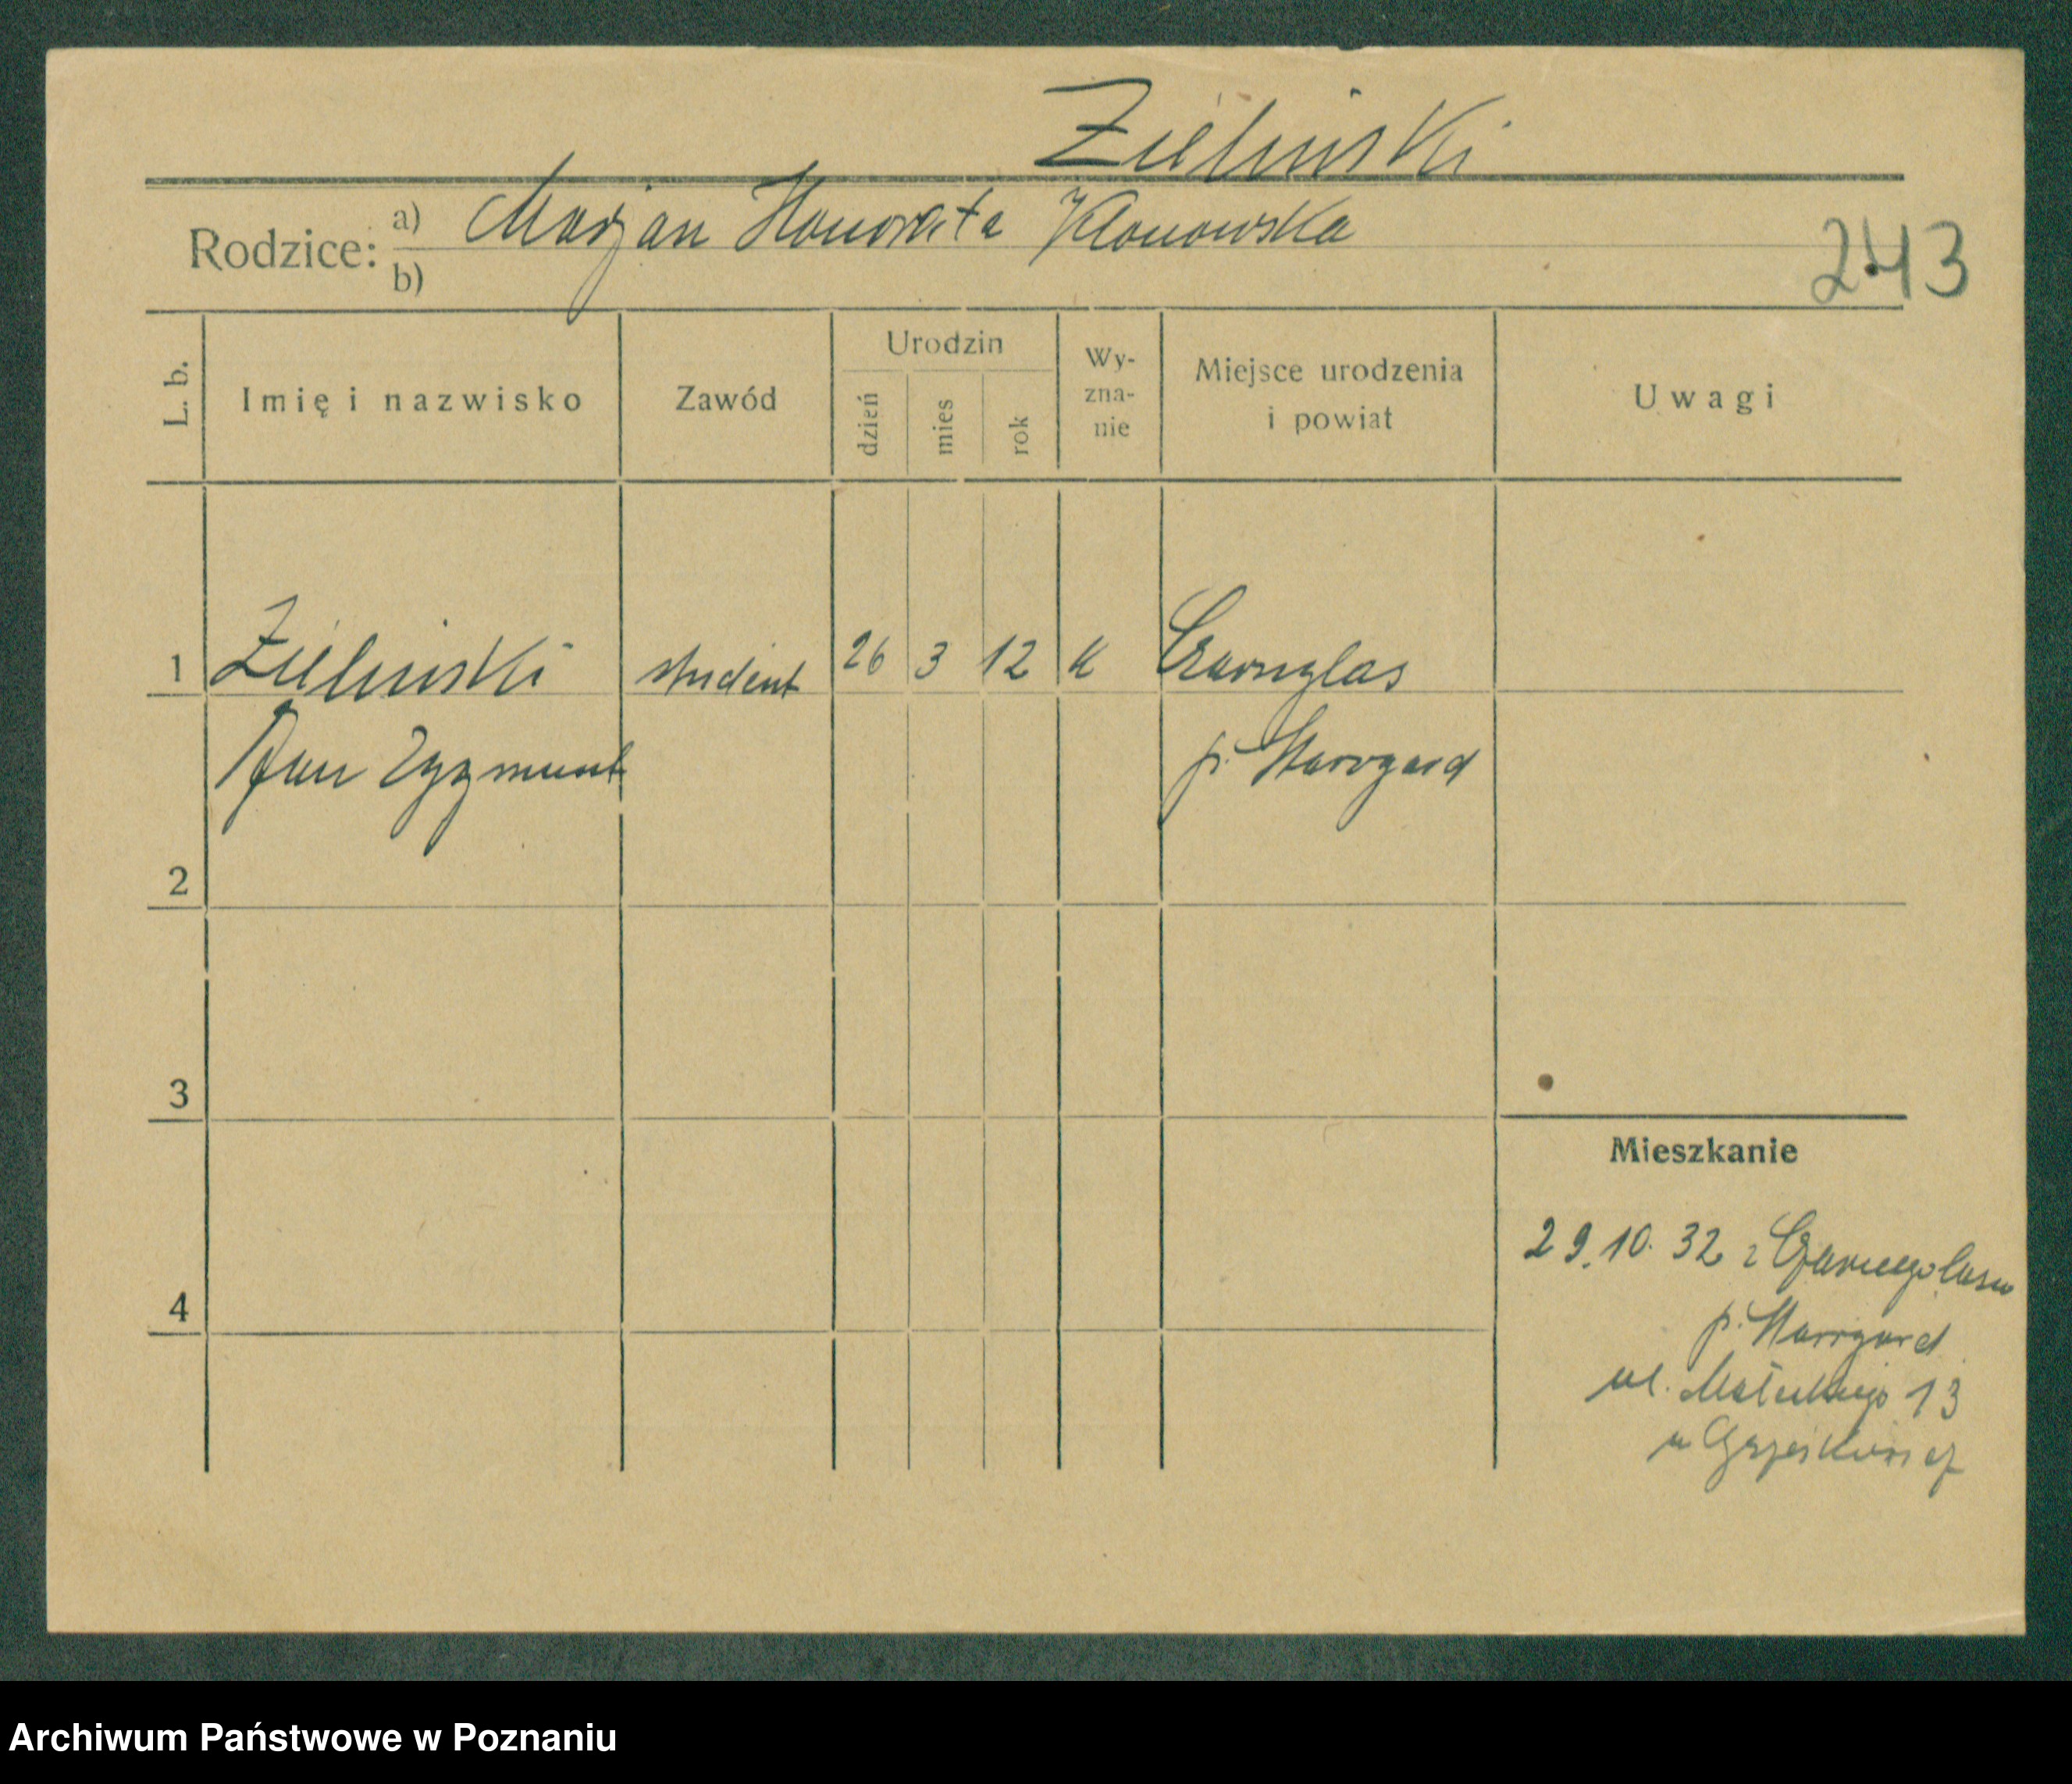 Zieliński
Rodzice: a) Marjan Honorata Klonowska
b)
243
L. b.
Imię i nazwisko
Zawód
Urodzin
dzień
mies
rok
Wy-
zna-
nie
Miejsce urodzenia
i powiat
Uwagi
1 Zieliński student 26 3 12 K Czarnylas
Jan Zygmunt p. Starogard
2
3
Mieszkanie
29.10.32 z Czarnegolasu
4
p. Starogard
ul. Małeckiego 13
u
Archiwum Państwowe w Poznaniu